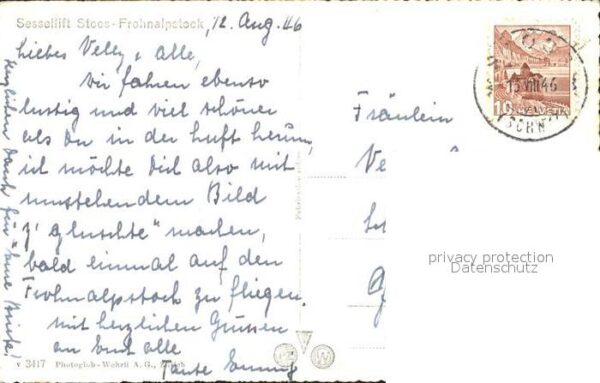 Sessellift Stoos-Frohnalpstock
12. Aug. 46
Liebes Velly & alle,
Wir fahren ebenso
lustig und viel schöner
als Du in der Luft herum,
ich möchte Dich also mit
umstehendem Bild
z' "gluschte" machen,
bald einmal auf den
Frohnalpstock zu fliegen.
mit herzlichen Grüssen
an Euch alle
Tante Emmy
herzlichen Dank für
Fräulein
Ve
15.VIII.46
10
HELVETIA
privacy protection
Datenschutz
v 3417 Photoglob-Wehrli A. G., Zürich